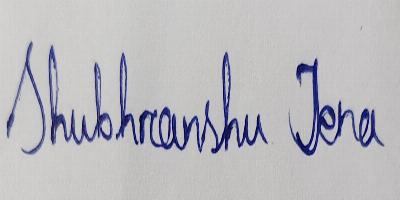 Shubhranshu Jena